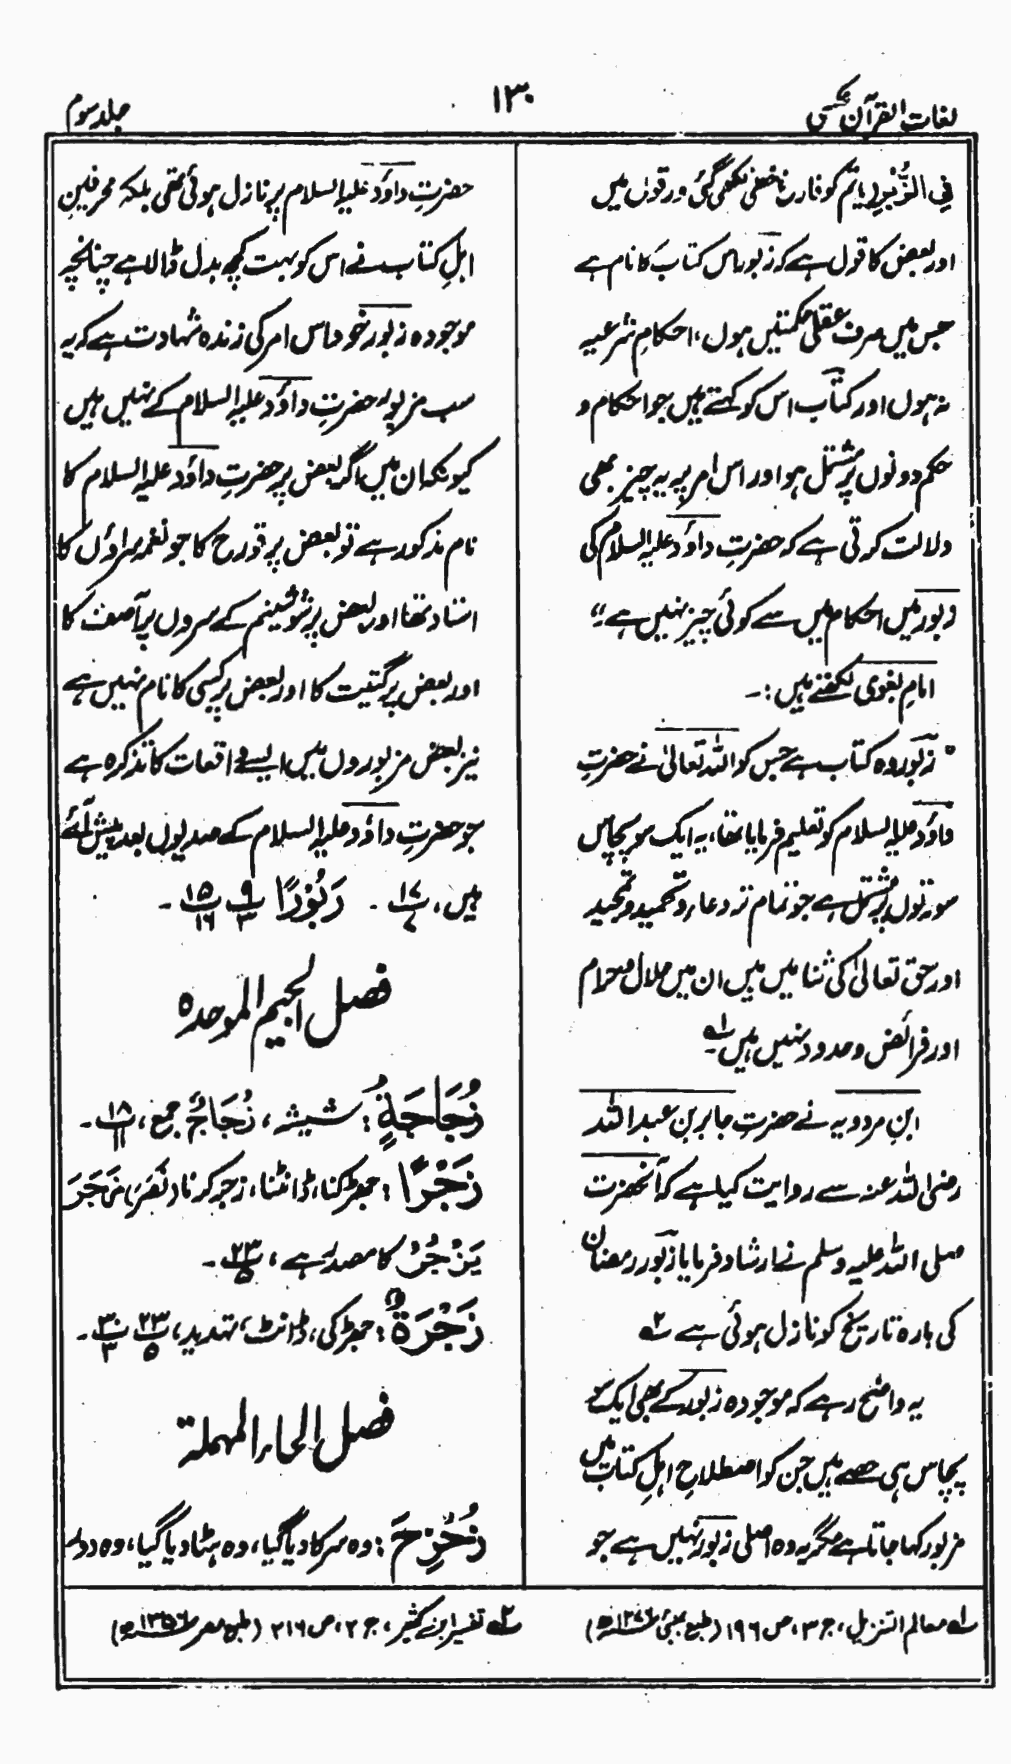 لغات القرآن
۱۳۰
جلد سوم
فِی الزُّبُرِ
اور بعض کا قول ہے کہ زبور اس کتاب کا نام ہے
جس میں صرف عقلی حکمتیں ہوں، احکامِ شرعیہ
نہ ہوں اور کتاب اس کو کہتے ہیں جو احکام و
حکم دونوں پر مشتمل ہو اور اس امر پر یہ چیز بھی
دلالت کرتی ہے کہ حضرتِ داؤد علیہ السلام کی
زبور میں احکام میں سے کوئی چیز نہیں ہے“
امام بغوی لکھتے ہیں :۔
”زبور وہ کتاب ہے جس کو اللہ تعالیٰ نے حضرتِ
داؤد علیہ السلام کو تعلیم فرمایا تھا، یہ ایک سو پچاس
سورتوں پر مشتمل ہے جو تمام تر دعاء و تحمید و تمجید
اور حق تعالیٰ کی ثنا میں ہیں ان میں حلال و حرام
اور فرائض و حدود نہیں ہیں لہ۔
ابنِ مردویہ نے حضرت جابر بن عبد اللہ
رضی اللہ عنہ سے روایت کیا ہے کہ آنحضرت
صلی اللہ علیہ وسلم نے ارشاد فرمایا زبور رمضان
کی بارہ تاریخ کو نازل ہوئی ہے ۲ہ
یہ واضح رہے کہ موجودہ زبور کے بھی ایک سو
پچاس ہی حصے ہیں جن کو اصطلاحِ اہلِ کتاب میں
مزبور کہا جاتا ہے مگر یہ وہ اصلی زبور نہیں ہے جو
حضرتِ داؤد علیہ السلام پر نازل ہوئی تھی بلکہ محرفینِ
اہلِ کتاب نے اس کو بہت کچھ بدل ڈالا ہے چنانچہ
موجودہ زبور خود اس امر کی زندہ شہادت ہے کہ یہ
سب مزبور حضرتِ داؤد علیہ السلام کے نہیں ہیں
کیونکہ ان میں اگر بعض پر حضرتِ داؤد علیہ السلام کا
نام مذکور ہے تو بعض پر قورح کا جو نغمہ سراؤں کا
استاد تھا اور بعض پر شوشینم کے سروں پر آصف کا
اور بعض پر گتیت کا اور بعض پر کسی کا نام نہیں ہے
نیز بعض مزبوروں میں ایسے واقعات کا تذکرہ ہے
جو حضرتِ داؤد علیہ السلام کے صدیوں بعد پیش آئے
ہیں، ۱۷/۷ ۔ زَبُوْرًا ۹/۳ ۱۵/۱۶ ۔
فصل الجیم الموحدہ
زُجَاجَةٍ : شیشہ، زُجَاجٌ جمع، ۱۸/۱۱ ۔
زَجْرًا : جھڑکنا، ڈانٹنا، زجر کرنا، نَصَرَ زَجَرَ
یَزْجُرُ کا مصدر ہے، ۲۳/۵ ۔
زَجْرَةٌ : جھڑکی، ڈانٹ، تہدید، ۲۳/۵ ۳۰/۳ ۔
فصل الحاء المہملۃ
زُحْزِحَ : وہ سرکا دیا گیا، وہ ہٹا دیا گیا، وہ دور
لہ معالم التنزیل، ج ۳، ص ۱۹۶ (طبع بمبئی ۱۲۷۶ھ)
۲ہ تفسیر ابن کثیر، ج ۲، ص ۲۱۶ (طبع مصر ۱۳۵۶ھ)